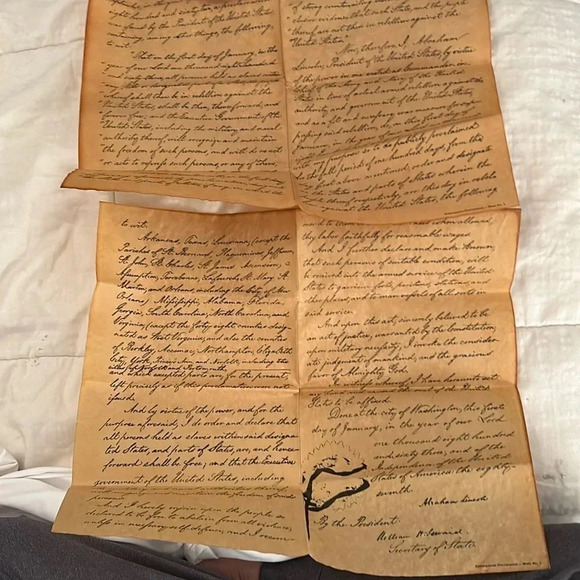 right hundred and sixty two, a proclamation
was issued by the President of the United States
containing, among other things, the following,
to wit:
"That on the first day of January, in the
"year of our Lord one thousand eight hundred
"and sixty-three, all persons held as slaves within
shall then be in rebellion against the
"United States, shall be then, thenceforward, and
"forever free; and the Executive Government of the
"United States, including the military and naval
"authority thereof, will recognize and maintain
"the freedom of such persons, and will do no act
"or acts to repress such persons, or any of them,
of strong countervailing
dence that such State, and the people
"thereof, are not then in rebellion against the
"United States."
Now, therefore I, Abraham
Lincoln, President of the United States, by virtue
of the power in me vested as Commander-in-
of the United
States in time of actual armed rebellion against the
authority and government of the United States,
and as a fit and necessary war measure for sup-
pressing said rebellion, do, on this first day of
January, in the
with my purpose so to do publicly proclaimed
for the full period of one hundred days, from the
day first above mentioned, order and designate
as the States and parts of States wherein the
people thereof respectively, are this day in rebel
the United States, the following
to wit:
Arkansas, Texas, Louisiana, (except the
Parishes of St. Bernard, Plaquemines, Jefferson,
St. John, St. Charles, St. James, Ascension,
Assumption, Terrebonne, Lafourche, St. Mary, St.
Martin, and Orleans, including the City of New
Orleans) Mississippi, Alabama, Florida,
Georgia, South Carolina, North Carolina, and
Virginia, (except the forty eight counties desig-
nated as West Virginia, and also the counties
of Berkley, Accomac, Northampton, Elizabeth
City, York, Princess Ann, and Norfolk, including the
cities of Norfolk and Portsmouth
and which excepted parts are, for the present,
left precisely as if this proclamation were not
issued.
And by virtue of the power, and for the
purpose aforesaid, I do order and declare that
all persons held as slaves within said designa-
ted States, and parts of States, are, and hence-
forward shall be free; and that the Executive
government of the United States, including
the freedom of said
persons.
And I hereby enjoin upon the people so
declared to be free to abstain from all violence,
unless in necessary self-defence; and I recom-
and when allowed,
they labor faithfully for reasonable wages.
And I further declare and make known,
that such persons of suitable condition, will
be received into the armed service of the United
States to garrison forts, positions, stations, and
other places, and to man vessels of all sorts in
said service.
And upon this act, sincerely believed to be
an act of justice, warranted by the Constitution,
upon military necessity, I invoke the consider-
ate judgment of mankind, and the gracious
favor of Almighty God.
In witness whereof, I have hereunto set
my hand and the seal of the United
States to be affixed.
Done at the city of Washington, this first
day of January, in the year of our Lord
one thousand eight hundred
and sixty three, and of the
Independence of the United
States of America the eighty-
seventh.
Abraham Lincoln
By the President:
William H. Seward
Secretary of State